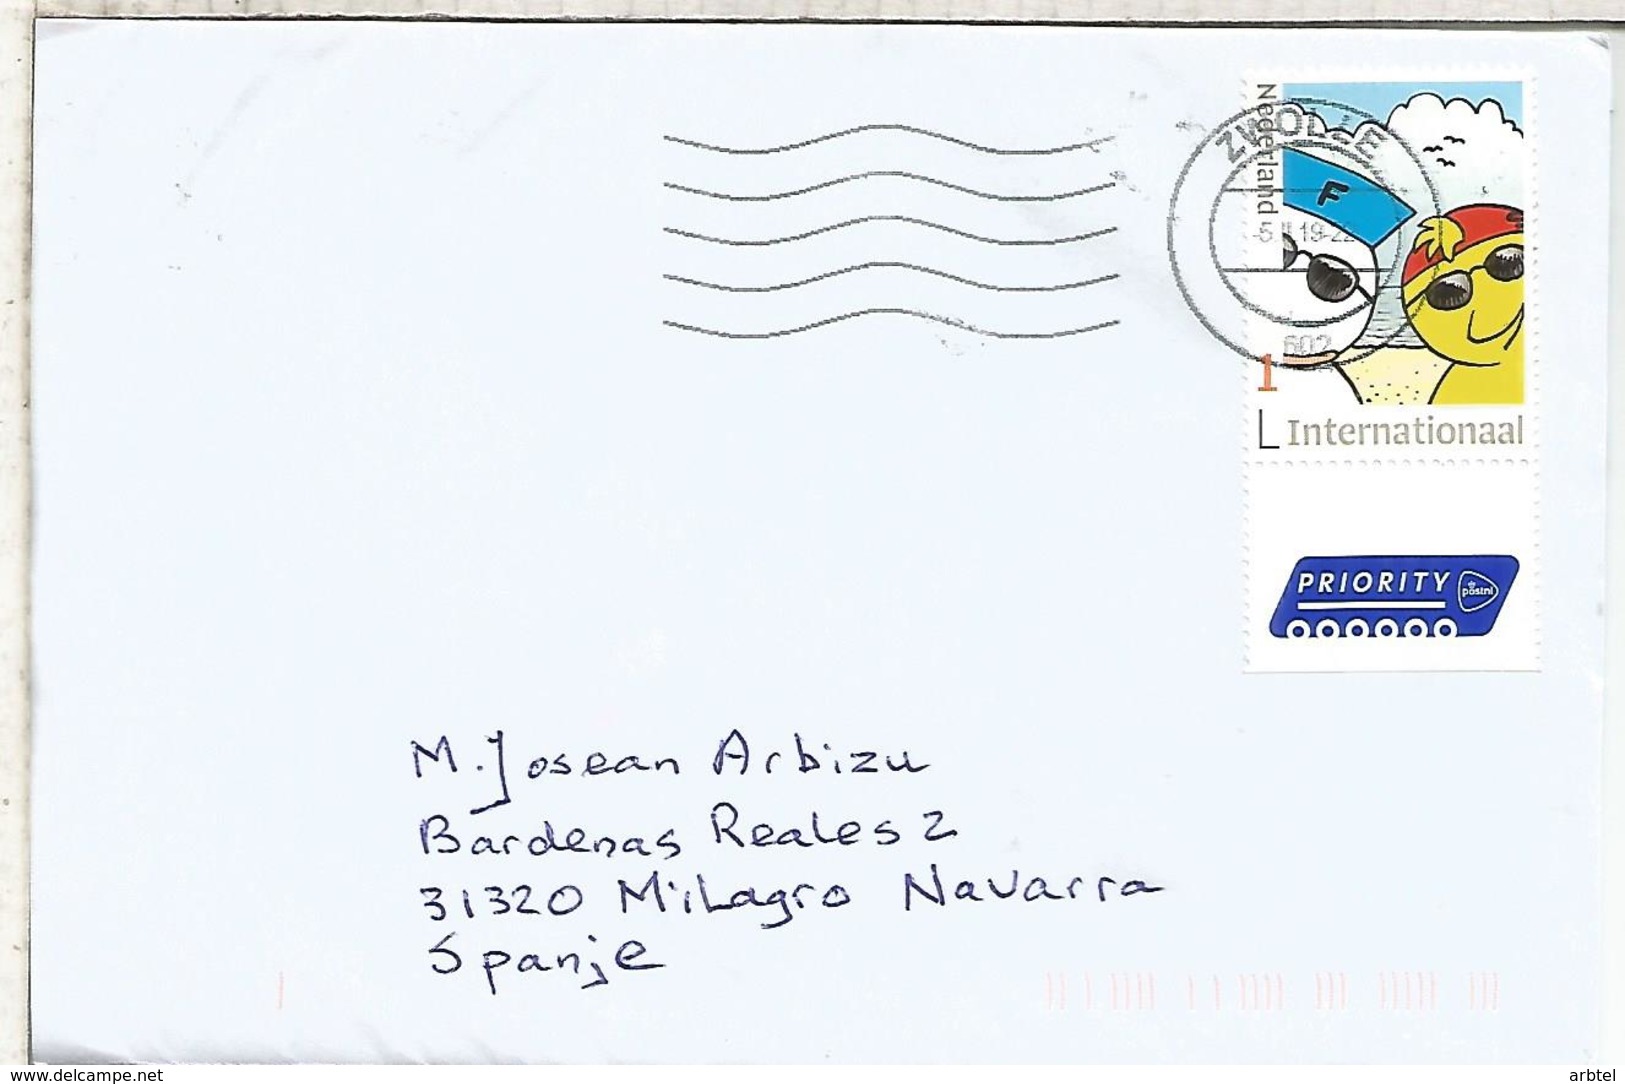 Nederland
ZWOLLE
F
602
1
Internationaal
PRIORITY
postnl
M. Josean Arbizu
Bardenas Reales 2
31320 Milagro Navarra
Spanje
www.delcampe.net
arbtel